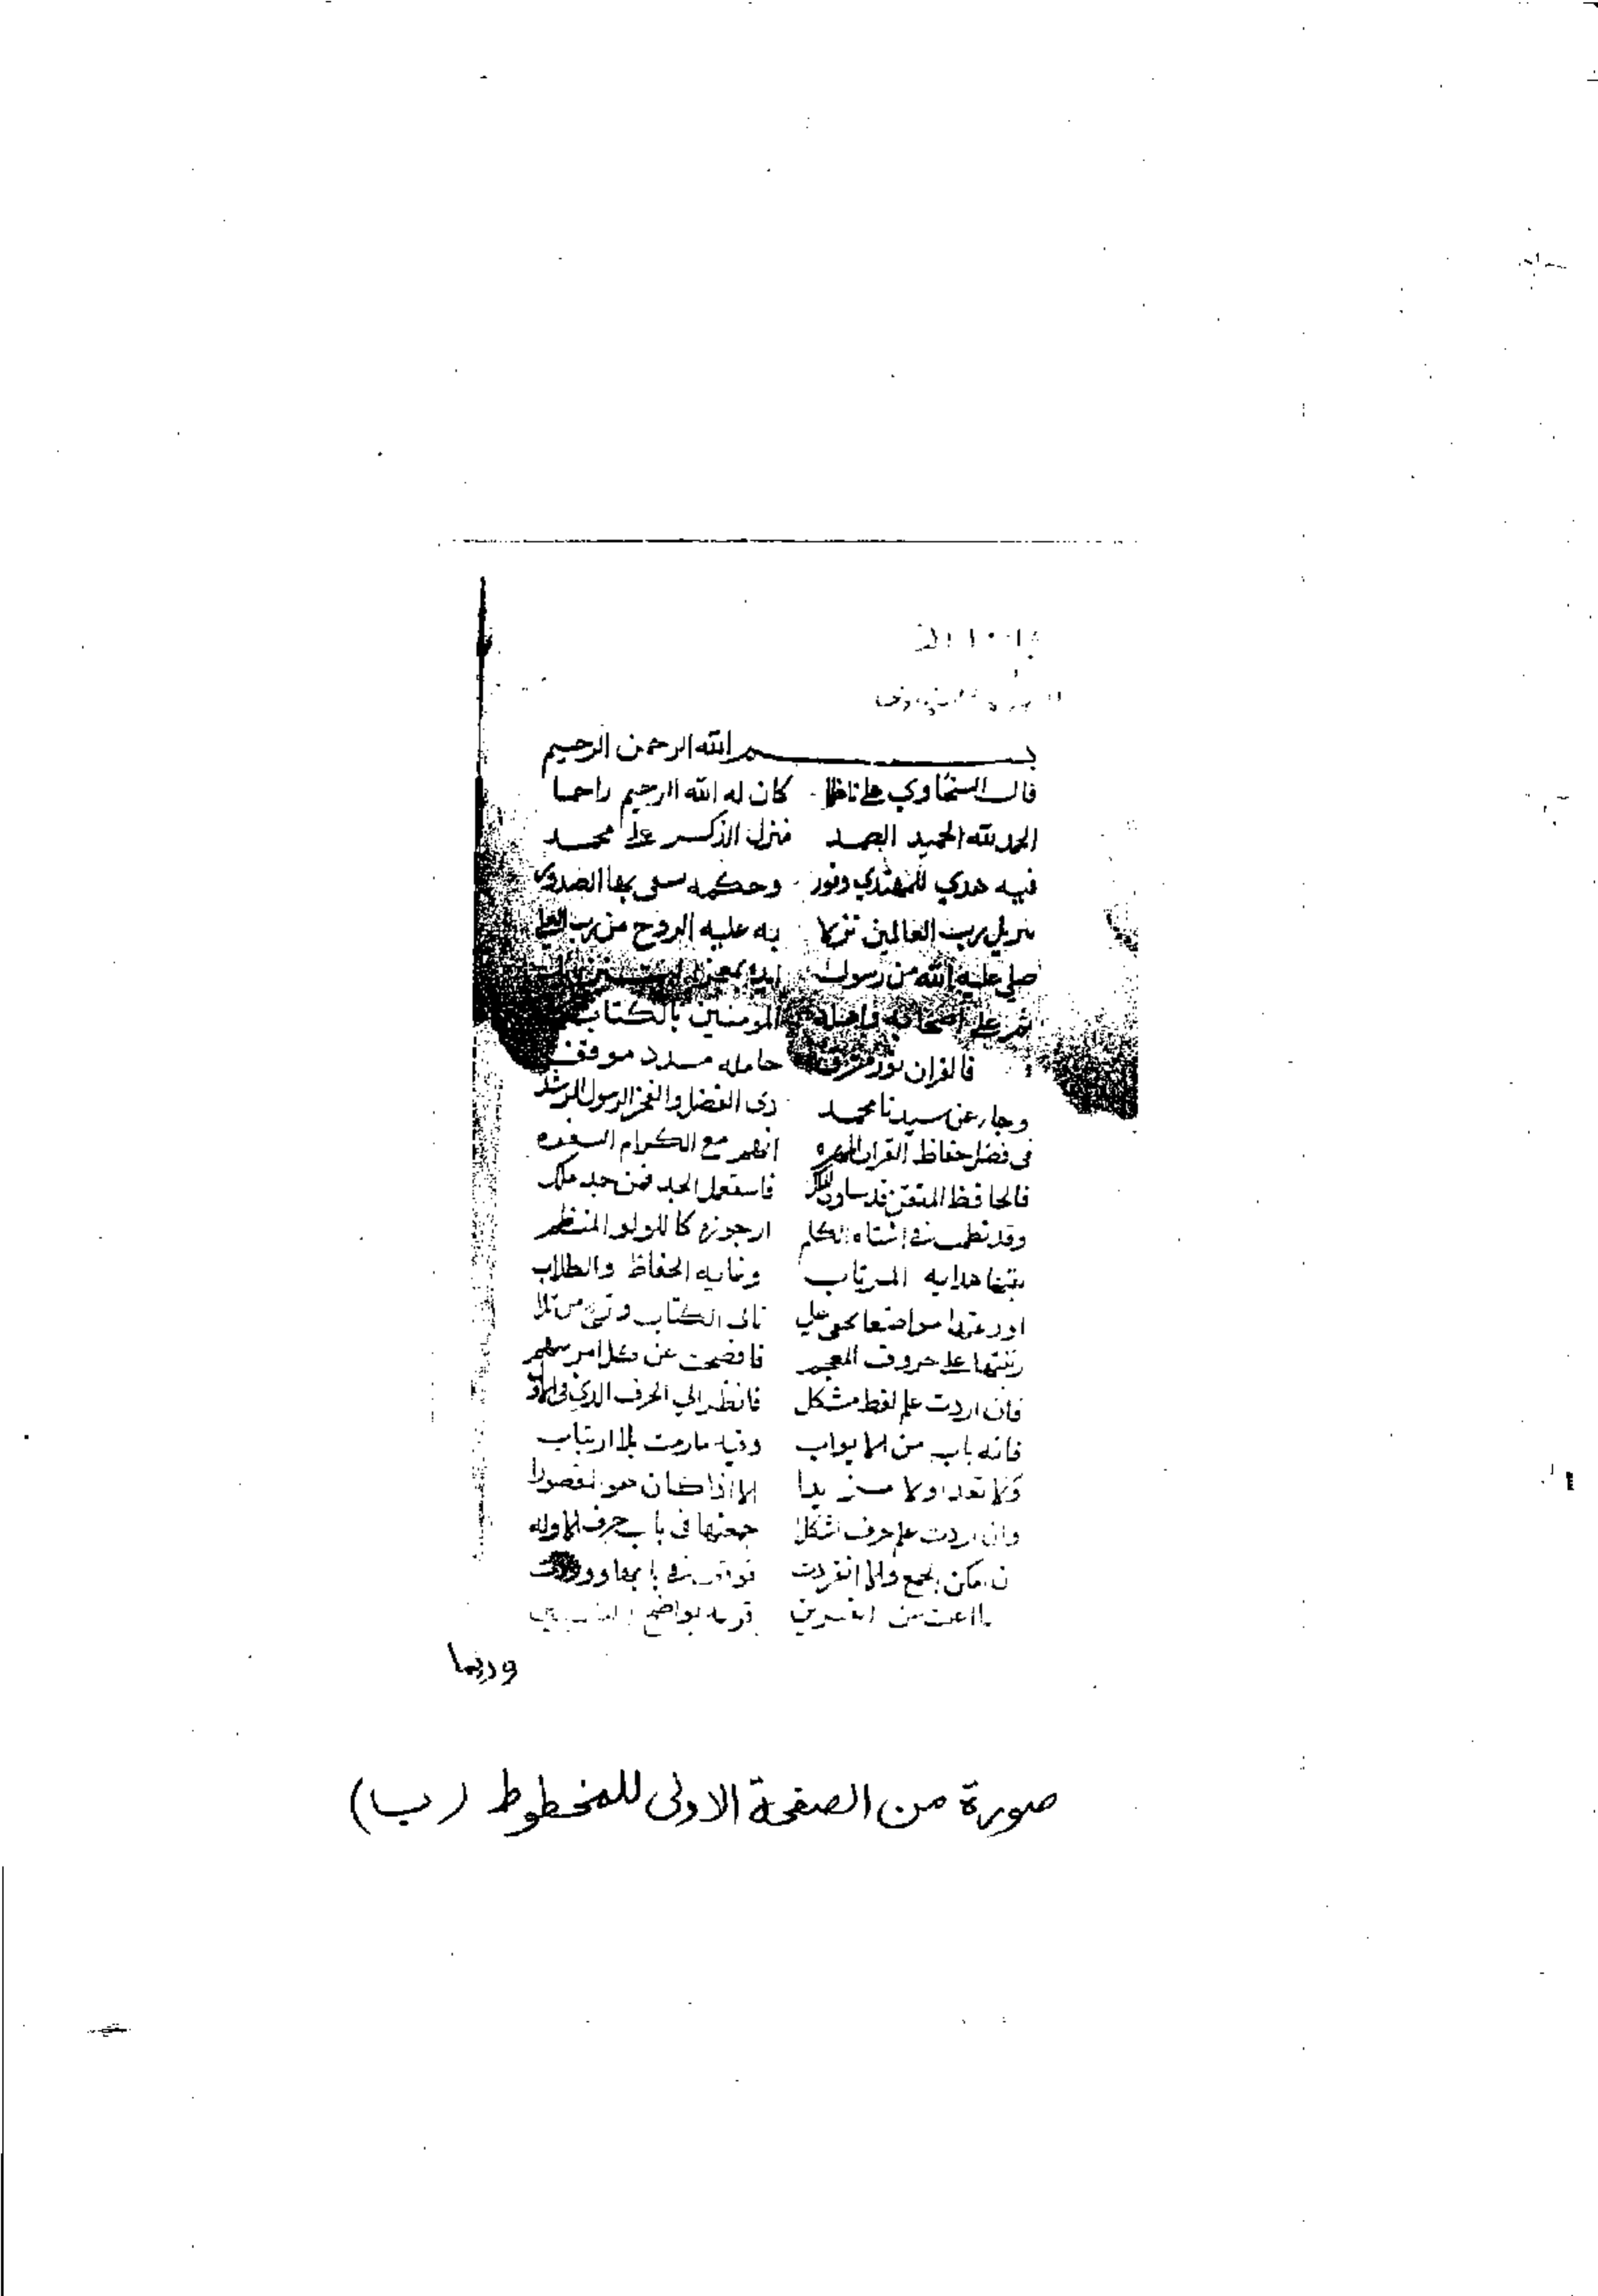 بسم الله الرحمن الرحيم
قال السخاوي علي ناظما كان له الله الرحيم راحما
الحمد لله الحميد الصمد منزل الذكر على محمد
فيه هدي للمهتدي ونور وحكمه تشفى بها الصدور
تنزيل رب العالمين نزلا به عليه الروح من رب العلي
صلي عليه الله من رسول ايده بمعجز
ثم على اصحابه واهله المومنين بالكتاب
فالقران نور مشرق حامله مسدد موفق
وجاء عن سيدنا محمد ذى الفضل والفخر الرسول المرشد
فى فضل حفاظ القران المهره انهم مع الكرام السفره
فالحافظ المتقن قد ساوى الملك فاستعمل الجد فمن جد ملك
وقد نظمت فى اشتباه الكلم ارجوزه كاللولو المنظم
لقبتها هدايه المرتاب وغايه الحفاظ والطلاب
اودعتها مواضعا تخفى علي تالى الكتاب وتريح من تلا
رتبتها على حروف المعجم فافصحت عن كل امر مبهم
فان اردت علم لفظ مشكل فانظر الي الحرف الذى فى الاول
فانه باب من الابواب وفيه مارمت بلا ارتياب
ولا تعد اولا مزيدا الا اذا كان هو المقصودا
وان اردت علم حرف اشكلا جمعتها فى باب حرف الاوله
ان امكن الجمع والا انفردت فى بابها ووردت
وربما
صورة من الصفحة الاولى للمخطوط (ب)